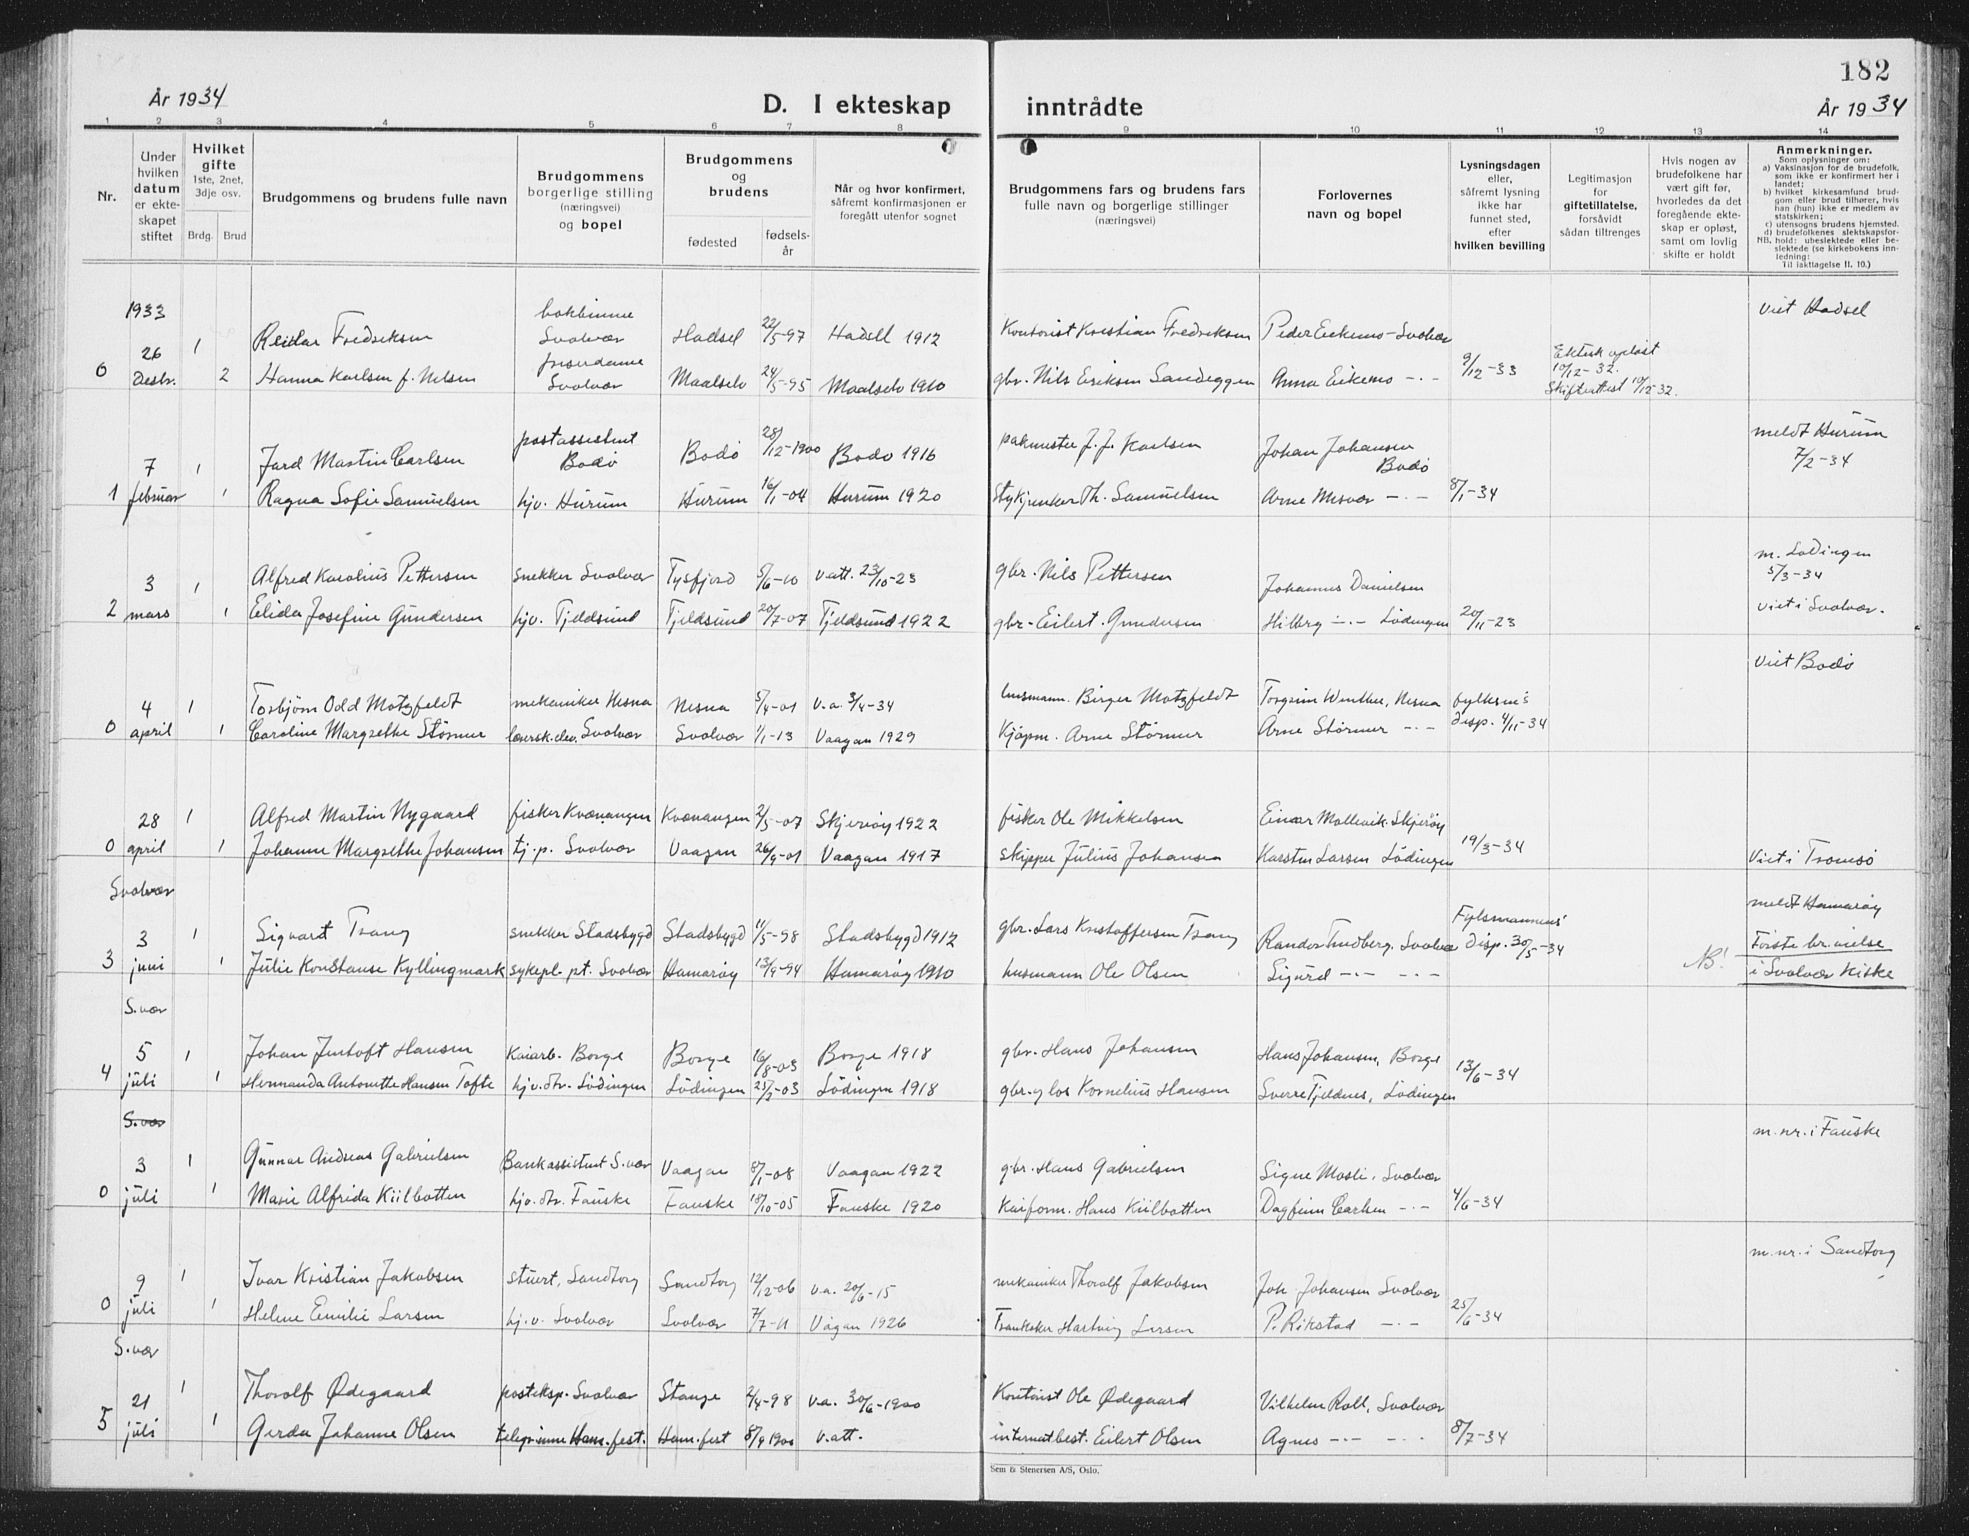 182
År 1934
D. I ekteskap inntrådte
År 1934
1 2 3 4 5 6 7 8 9 10 11 12 13 14
Nr.
Under hvilken datum er ekteskapet stiftet
Hvilket gifte
1ste, 2net, 3dje osv.
Brdg. Brud
Brudgommens og brudens fulle navn
Brudgommens borgerlige stilling (næringsvei) og bopel
Brudgommens og brudens
fødested
fødselsår
Når og hvor konfirmert, såfremt konfirmasjonen er foregått utenfor sognet
Brudgommens fars og brudens fars fulle navn og borgerlige stillinger (næringsvei)
Forlovernes navn og bopel
Lysningsdagen eller, såfremt lysning ikke har funnet sted, efter hvilken bevilling
Legitimasjon for giftetillatelse, forsåvidt sådan tiltrenges
Hvis nogen av brudefolkene har vært gift før, hvorledes da det foregående ekteskap er opløst, samt om lovlig skifte er holdt
Anmerkninger.
Som oplysninger om:
a) Vaksinasjon for de brudefolk, som ikke er konfirmert her i landet;
b) hvilket kirkesamfund brudgom eller brud tilhører, hvis han (hun) ikke er medlem av statskirken;
c) utensogns brudens hjemsted.
d) brudefolkenes slektskapsforhold: ubeslektede eller beslektede (se kirkebokens innledning:
NB.
Til iakttagelse II. 10.)
1933
26 Desbr. 1 Reidar Fredriksen Svolvær Hadsel 22/5-97 Hadsel 1912 Kontorist Kristian Fredriksen Peder Eikemo - Svolvær viet Hadsel
0 2 Hanna Karlsen f. Nilsen Svolvær Maalselv 24/5-95 Maalselv 1910 gbr. Nils Eriksen Sandeggen Anna Eikemo -·- 9/12-33 Ektesk. opløst 10/12-32. Skifteattest 10/12-32.
7 februar 1 Martin Carlsen postassistent Bodø Bodø 28/12-1900 Bodø 1916 pakmester J. J. Karlsen Johan Johansen Bodø meldt Hurum 7/2-34
1 1 Ragna Sofie Samuelsen hjv. Hurum Hurum 16/1-04 Hurum 1920 Th. Samuelsen Arne -·- 8/1-34
3 mars 1 Alfred Karolius Pettersen snekker Svolvær Tysfjord 5/6-10 v.att. 23/10-23 gbr. Nils Pettersen Johannes Danielsen m. Lødingen 5/3-34
2 1 Elida Josefine Gundersen hjv. Tjeldsund Tjeldsund 20/7-07 Tjeldsund 1922 gbr. Eilert Gundersen -·- Lødingen 20/11-23 viet i Svolvær.
4 april 1 Torbjørn Odd Motzfeldt mekaniker Nesna Nesna 5/4-01 v.a. 3/4-34 Birger Motzfeldt Torgrim Winther, Nesna fylkesm's viet Bodø
0 1 Caroline Margrethe Størmer Svolvær Svolvær 1/1-13 Vaagan 1929 Kjøpm. Arne Størmer Arne Størmer -·- disp. 4/11-34
28 april 1 Alfred Martin Nygaard fisker Kvænangen Kvænangen 2/5-07 Skjervøy 1922 fisker Ole Mikkelsen Einar Skjervøy
0 1 Johanne Margrethe Johansen tj.p. Svolvær Vaagan 26/9-01 Vaagan 1917 skipper Julius Johansen Karsten Larsen Lødingen 19/3-34 Viet i Tromsø
Svolvær
3 juni 1 Sigvart Trang snekker Stadsbygd Stadsbygd 11/5-98 Stadsbygd 1912 gbr. Lars Kristoffersen Trang Randor Tundberg. Svolvær Fylkesmannens' disp. 30/5-34 meldt Hamarøy
3 1 Julie Konstanse Kyllingmark sykepl. pt. Svolvær Hamarøy 13/9-94 Hamarøy 1910 husmann Ole Olsen Sigurd -·- -·- NB! Første br.vielse i Svolvær Kirke
S.vær
5 juli 1 Johan Hansen Kaiarb. Borge Borge 16/8-03 Borge 1918 gbr. Hans Johansen Hans Johansen, Borge
4 1 Hermanda Antonette Hansen Tofte hjv. dtr. Lødingen Lødingen 25/2-03 Lødingen 1918 gbr. og los Kornelius Hansen Sverre Tjeldnes, Lødingen 13/6-34
S.vær
3 juli 1 Gunnar Andreas Gabrielsen Bankassistent S.vær Vaagan 8/1-08 Vaagan 1922 gbr. Hans Gabrielsen Signe Mosli, Svolvær m. nr. i Fauske
0 1 Marie Alfrida Kiilbotten hjv. dtr. Fauske Fauske 18/10-05 Fauske 1920 Kaiform. Hans Kiilbotten Dagfinn Carlsen -·- 4/6-34
9 juli 1 Ivar Kristian Jakobsen stuert, Sandtorg Sandtorg 12/12-06 v.a. 20/6-15 mekaniker Thorolf Jakobsen Joh. Johansen Svolvær m. nr. i Sandtorg
0 1 Helene Emilie Larsen hj.v. Svolvær Svolvær 7/7-11 Vågan 1926 Trankoker Hartvig Larsen P. Rikstad -·- 25/6-34
S.vær
21 juli 1 Thorolf Ødegaard posteksp. Svolvær Stange 2/4-98 v.a. 30/6-1900 Kontorist Ole Ødegaard Vilhelm Roll, Svolvær
5 1 Gerda Johanne Olsen Ham.fest. Ham.fest 8/9 1900 v.att. internatbest. Eilert Olsen Agnes -·- -·- 8/7-34
Sem & Stenersen A/S, Oslo.